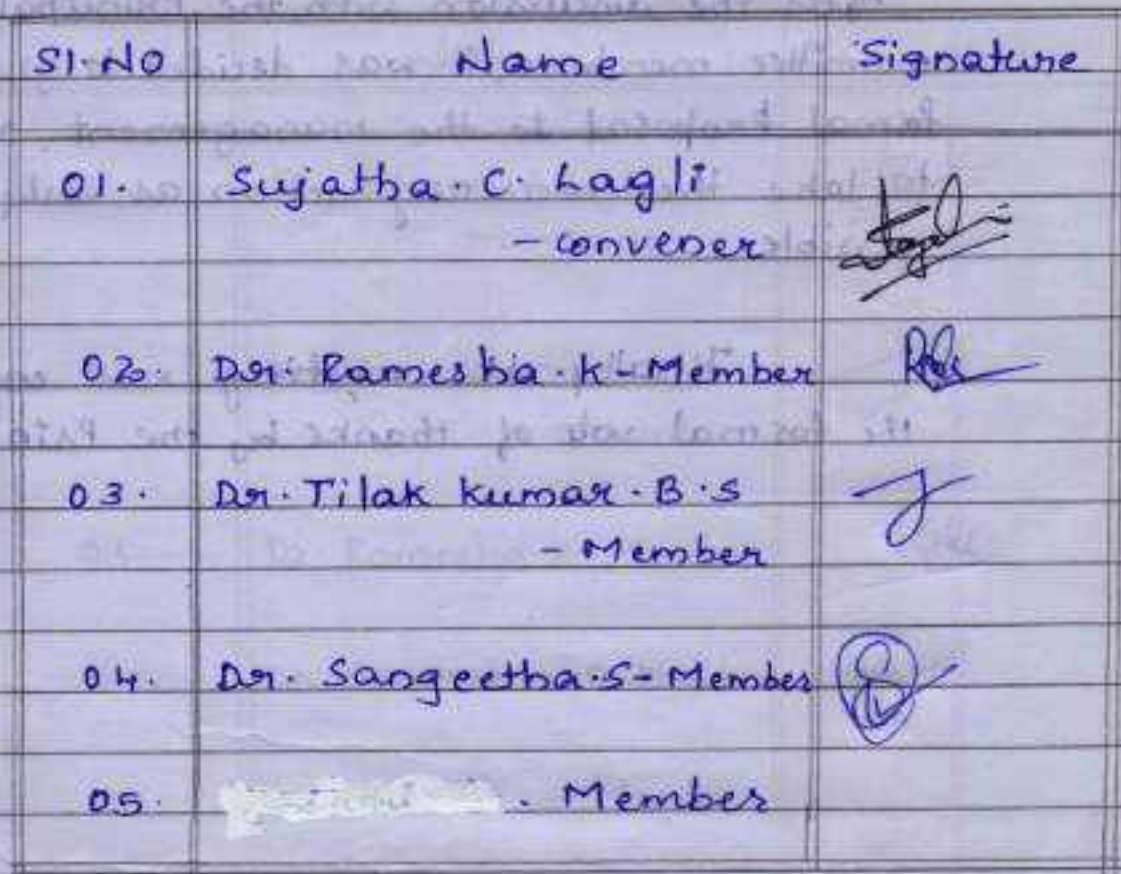 Sl.No Name Signature
01. Sujatha. C. Lagli
- convener
02. Dr. Ramesha. K - Member
03. Dr. Tilak Kumar. B.S
- Member
04. Dr. Sangeetha.S - Member
05. . Member